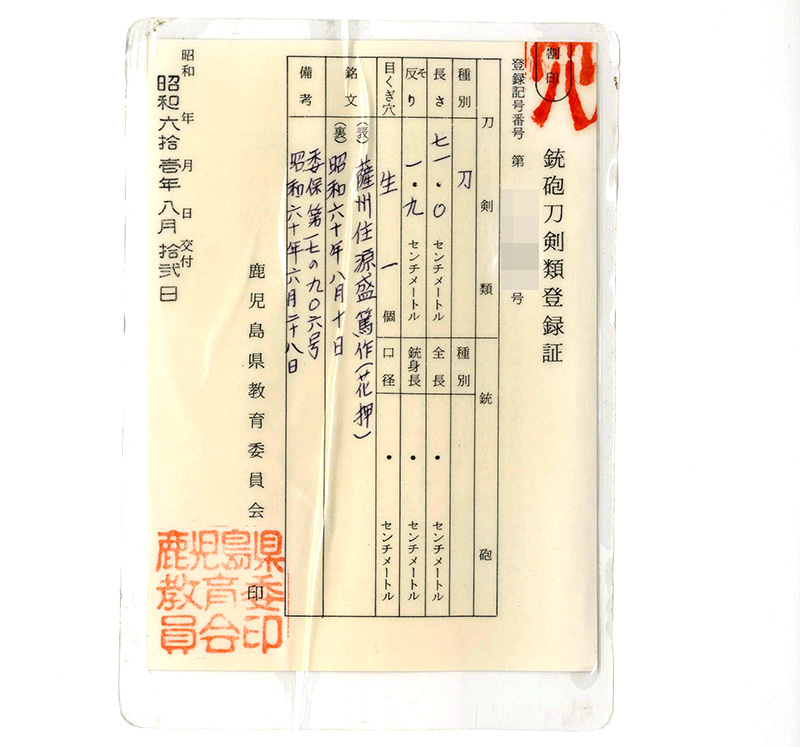 割印
銃砲刀剣類登録証
登録記号番号 第 号
刀剣類
銃砲
種別 刀
種別
長さ 七一・〇 センチメートル
全長 ・ センチメートル
反り そ 一・九 センチメートル
銃身長 ・ センチメートル
目くぎ穴 生 一 個
口径 ・ センチメートル
銘文
(表) 薩州住源盛篤作(花押)
(裏) 昭和六十年八月十日
備考
委保第一七の九〇六号
昭和六十年六月二十八日
鹿児島県教育委員会 印
昭和 年 月 日 交付
昭和六拾壱年八月拾弐日
鹿児島県
教育委
員会印